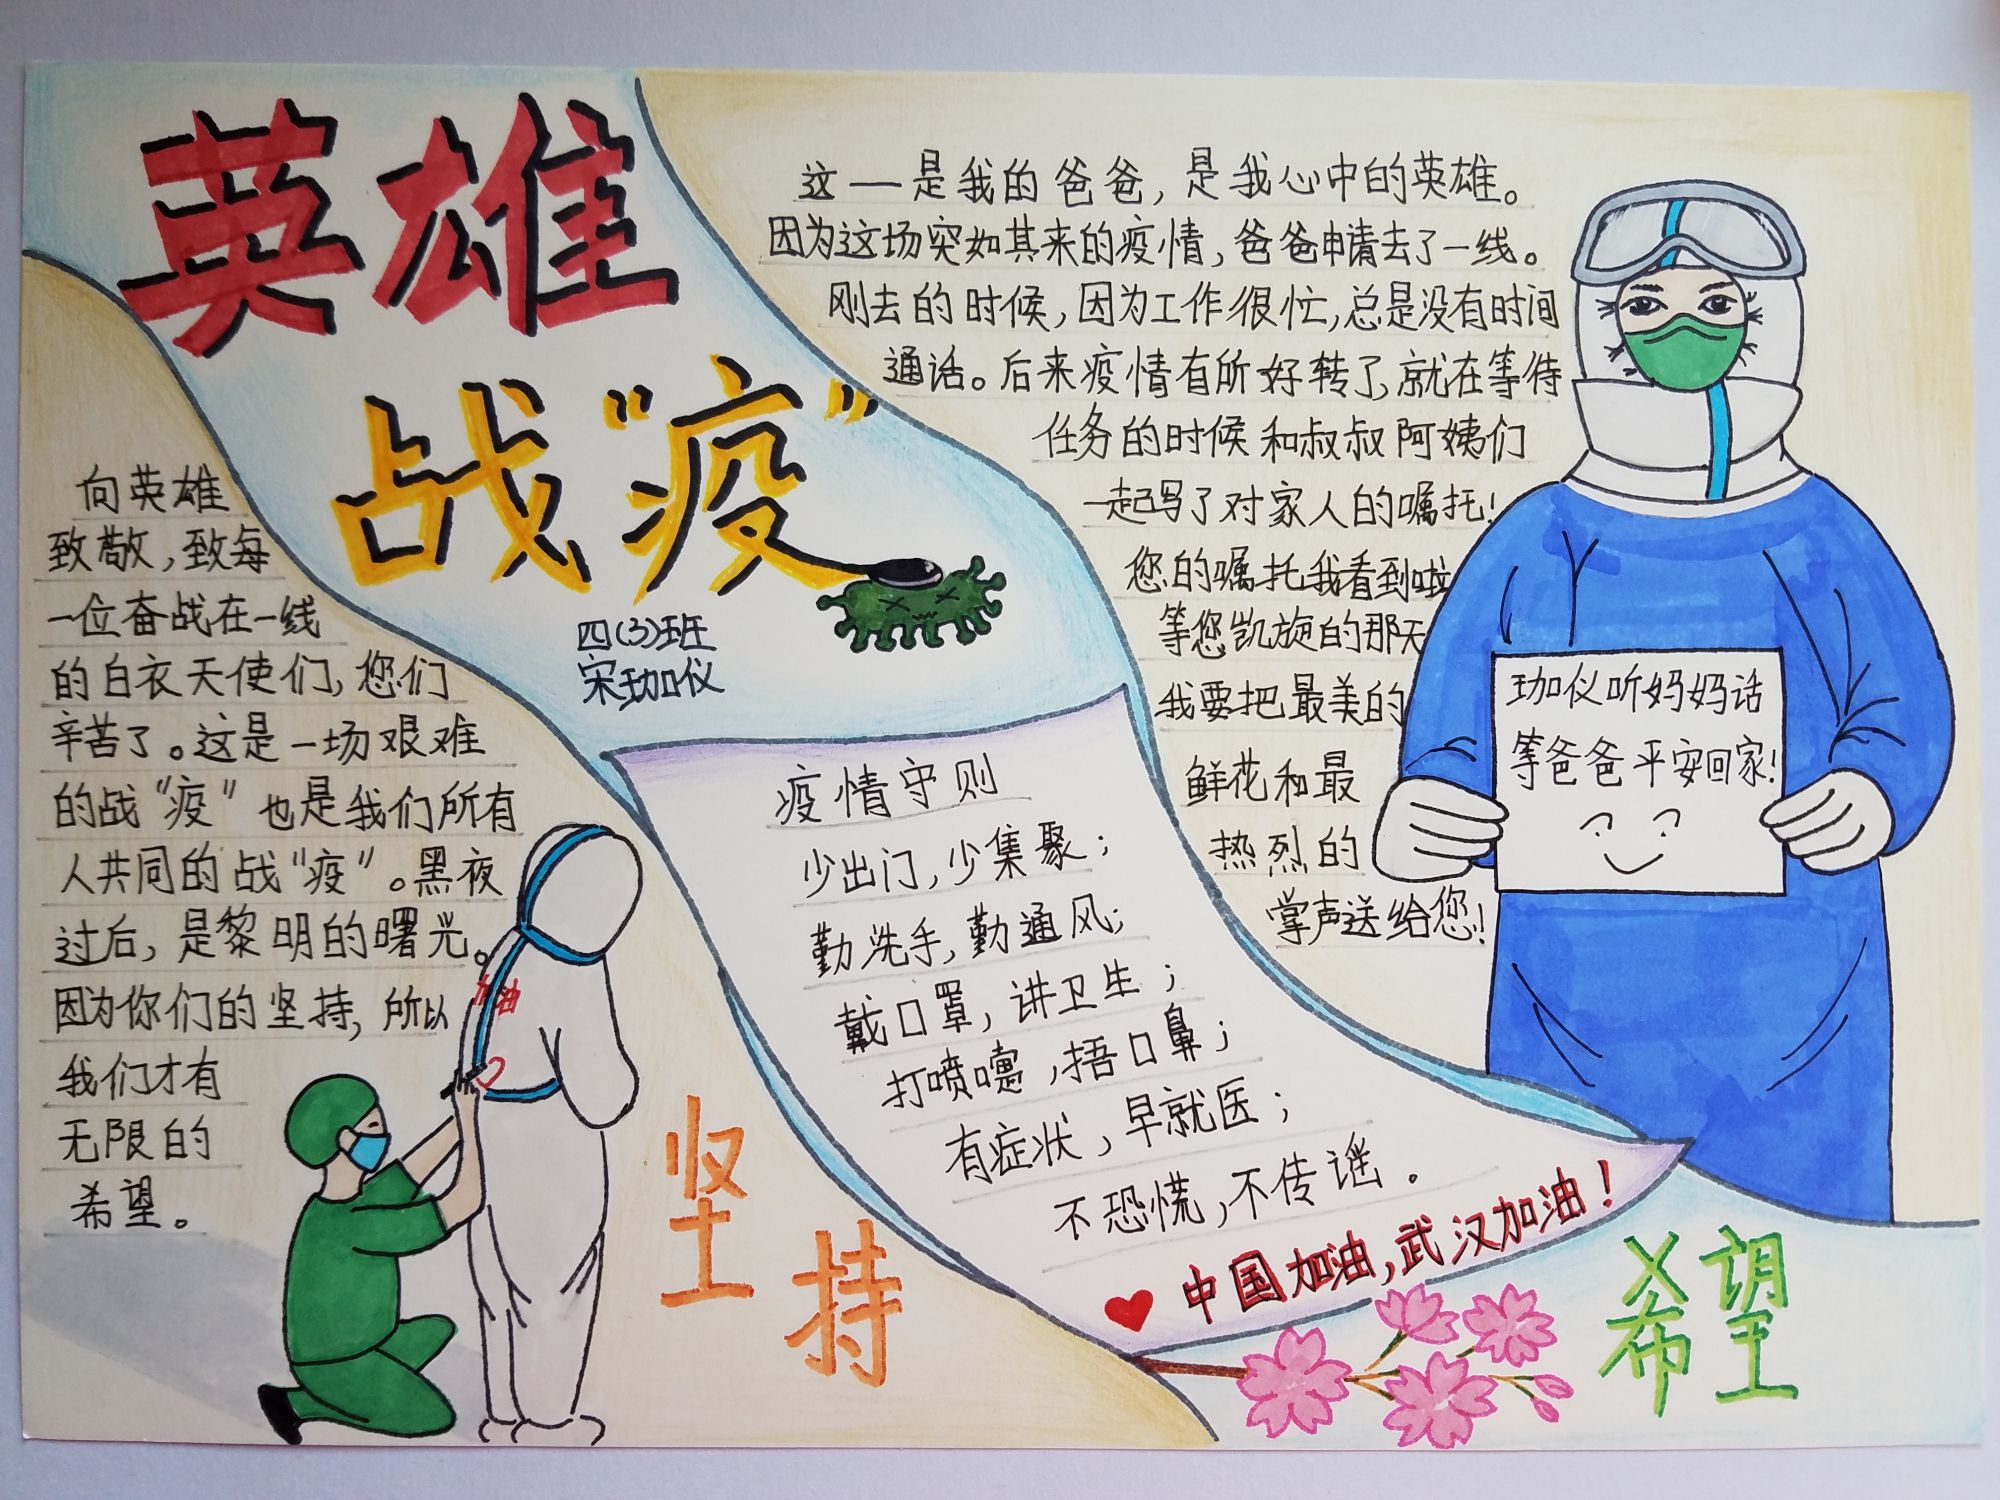 英雄
战“疫”
四(3)班
宋珈仪
向英雄
致敬，致每
一位奋战在一线
的白衣天使们，您们
辛苦了。这是一场艰难
的战“疫”也是我们所有
人共同的战“疫”。黑夜
过后，是黎明的曙光。
因为你们的坚持，所以
我们才有
无限的
希望。
加油
坚持
疫情守则
少出门，少集聚；
勤洗手，勤通风；
戴口罩，讲卫生；
打喷嚏，捂口鼻；
有症状，早就医；
不恐慌，不传谣。
中国加油，武汉加油！
这一是我的爸爸，是我心中的英雄。
因为这场突如其来的疫情，爸爸申请去了一线。
刚去的时候，因为工作很忙，总是没有时间
通话。后来疫情有所好转了，就在等待
任务的时候和叔叔阿姨们
一起写了对家人的嘱托！
您的嘱托我看到啦
等您凯旋的那天
我要把最美的
鲜花和最
热烈的
掌声送给您！
珈仪听妈妈话
等爸爸平安回家！
希望